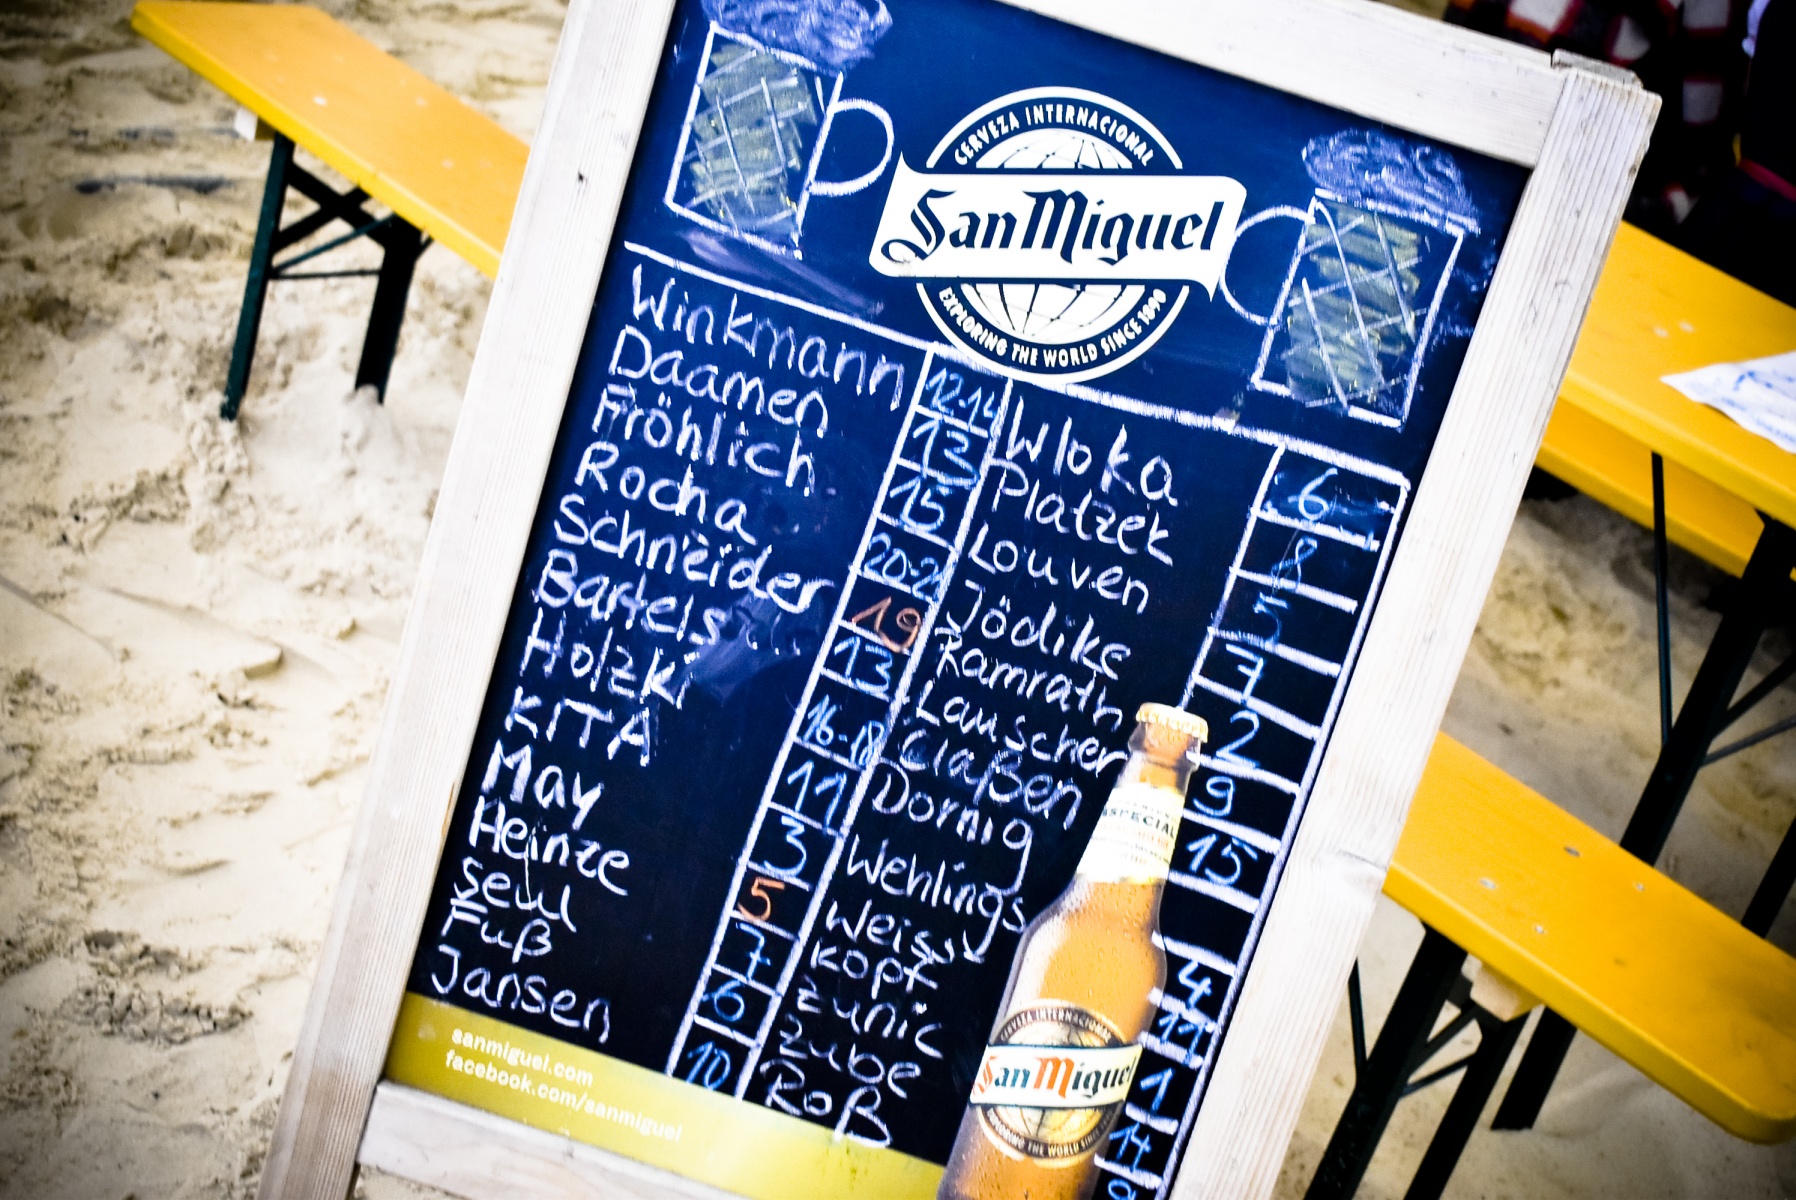 CERVEZA INTERNACIONAL
San Miguel
EXPLORING THE WORLD SINCE 1890
Winkmann 12-14
Daamen 13
Fröhlich 15
Rocha
Schneider 19
Bartels 13
Holzki 16-18
KITA 11
May 3
Heinze 5
7
Fuß 6
Jansen 10
Wloka 6
Platzek 8
Louven 5
Jödike 7
Ramrath 2
Lauscher 9
Claßen 15
Dornig
Wehlings 4
Weiss 11
kopf
Zunic 1
Zube 14
Roß 9
ESPECIAL
CERVEZA INTERNACIONAL
San Miguel
EXPLORING THE WORLD SINCE
sanmiguel.com
facebook.com/sanmiguel